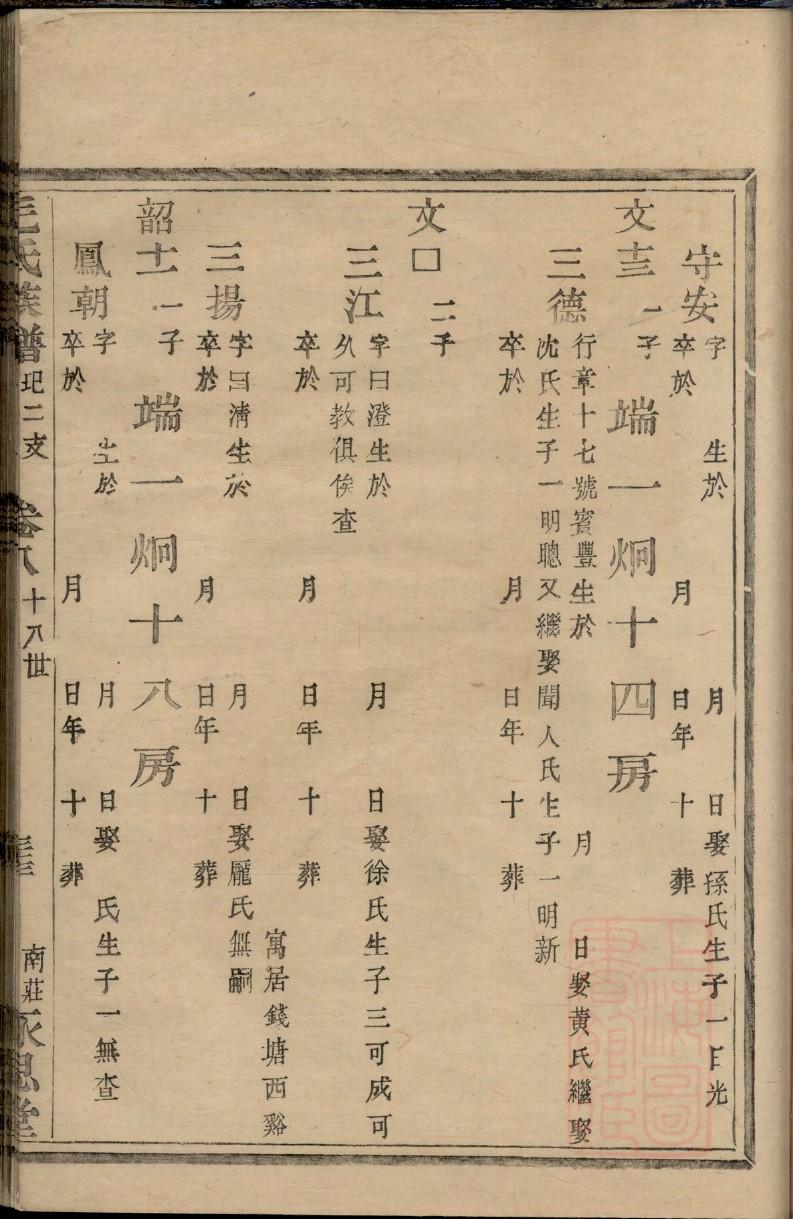 守安 字 生於 月 日娶孫氏生子一日光
卒於 月 日年 十 葬
文十三 一子 端一炯十四房
三德 行章十七號賓豐生於 月 日娶黄氏繼娶
沈氏生子一明聰又繼娶聞人氏生子一明新
卒於 月 日年 十 葬
文□ 二子
三江 字曰澄生於 月 日娶徐氏生子三可成可
久可教俱俟查
卒於 月 日年 十 葬
寓居錢塘西谿
三揚 字曰清生於 月 日娶龐氏無嗣
卒於 月 日年 十 葬
韶十一 一子 端一炯十八房
鳳朝 字 生於 月 日娶 氏生子一無查
卒於 月 日年 十 葬
毛氏族譜 圯二支 卷八 十八世 南莊 永思堂
上海圖書館藏